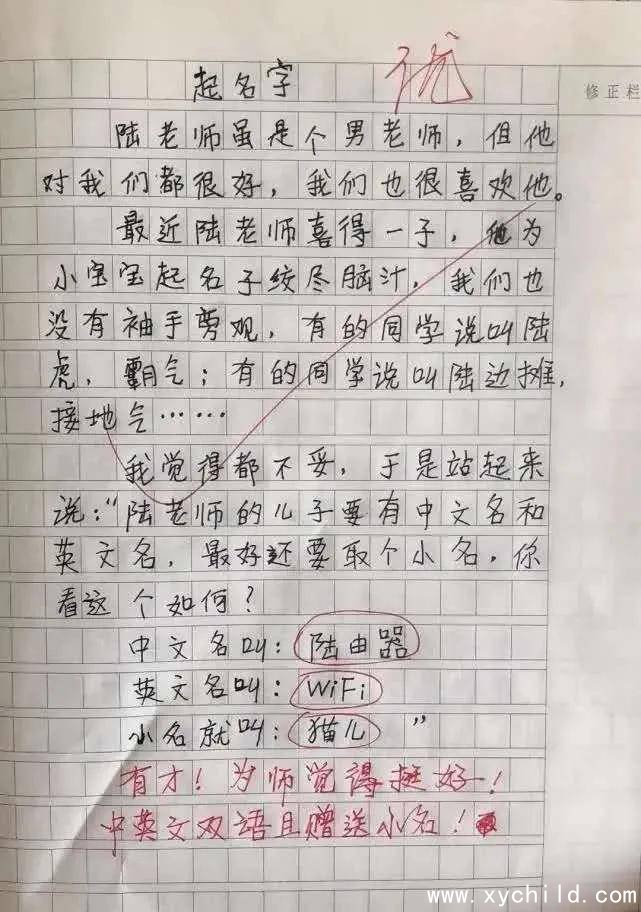 优
起名字
修正栏
陆老师虽是个男老师，但他
对我们都很好，我们也很喜欢他。
最近陆老师喜得一子，他为
小宝宝起名子绞尽脑汁，我们也
没有袖手旁观，有的同学说叫陆
虎，霸气；有的同学说叫陆边摊，
接地气……
我觉得都不妥，于是站起来
说：“陆老师的儿子要有中文名和
英文名，最好还要取个小名，你
看这个如何？
中文名叫：陆由器
英文名叫：WiFi
小名就叫：猫儿”
有才！为师觉得挺好！
中英文双语且赠送小名！
www.xychild.com